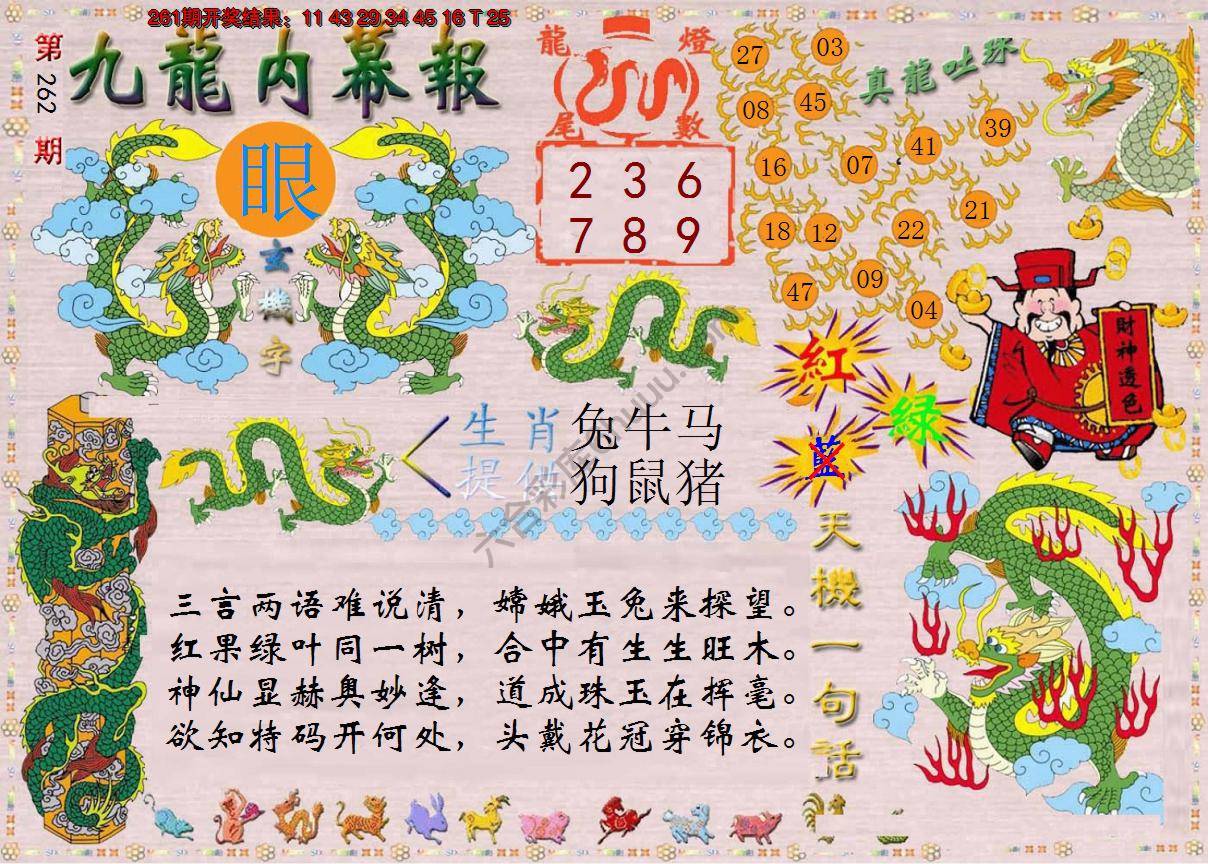 261期开奖结果：11 43 29 34 45 16 T 25
第262期
九龍内幕報
眼
玄機字
龍燈
尾數
2 3 6
7 8 9
真龍吐珠
27 03
08 45
16 07 41 39
18 12 22 21
47 09 04
財神透色
紅
綠
藍
生肖
提供
兔牛马
狗鼠猪
天機一句話
三言两语难说清，嫦娥玉兔来探望。
红果绿叶同一树，合中有生生旺木。
神仙显赫奥妙逢，道成珠玉在挥毫。
欲知特码开何处，头戴花冠穿锦衣。